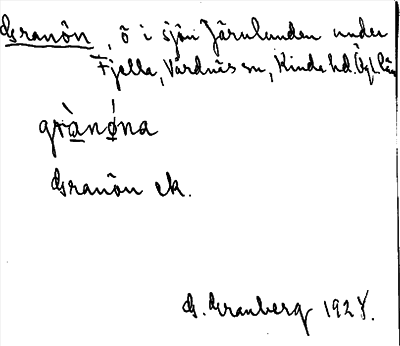 Granön, ö i sjön Järnlunden under
Fjella, Vårdnäs sn, Kinda hd, Ögl. län
grànǿna
Granön ek.
G. Granberg 1927.